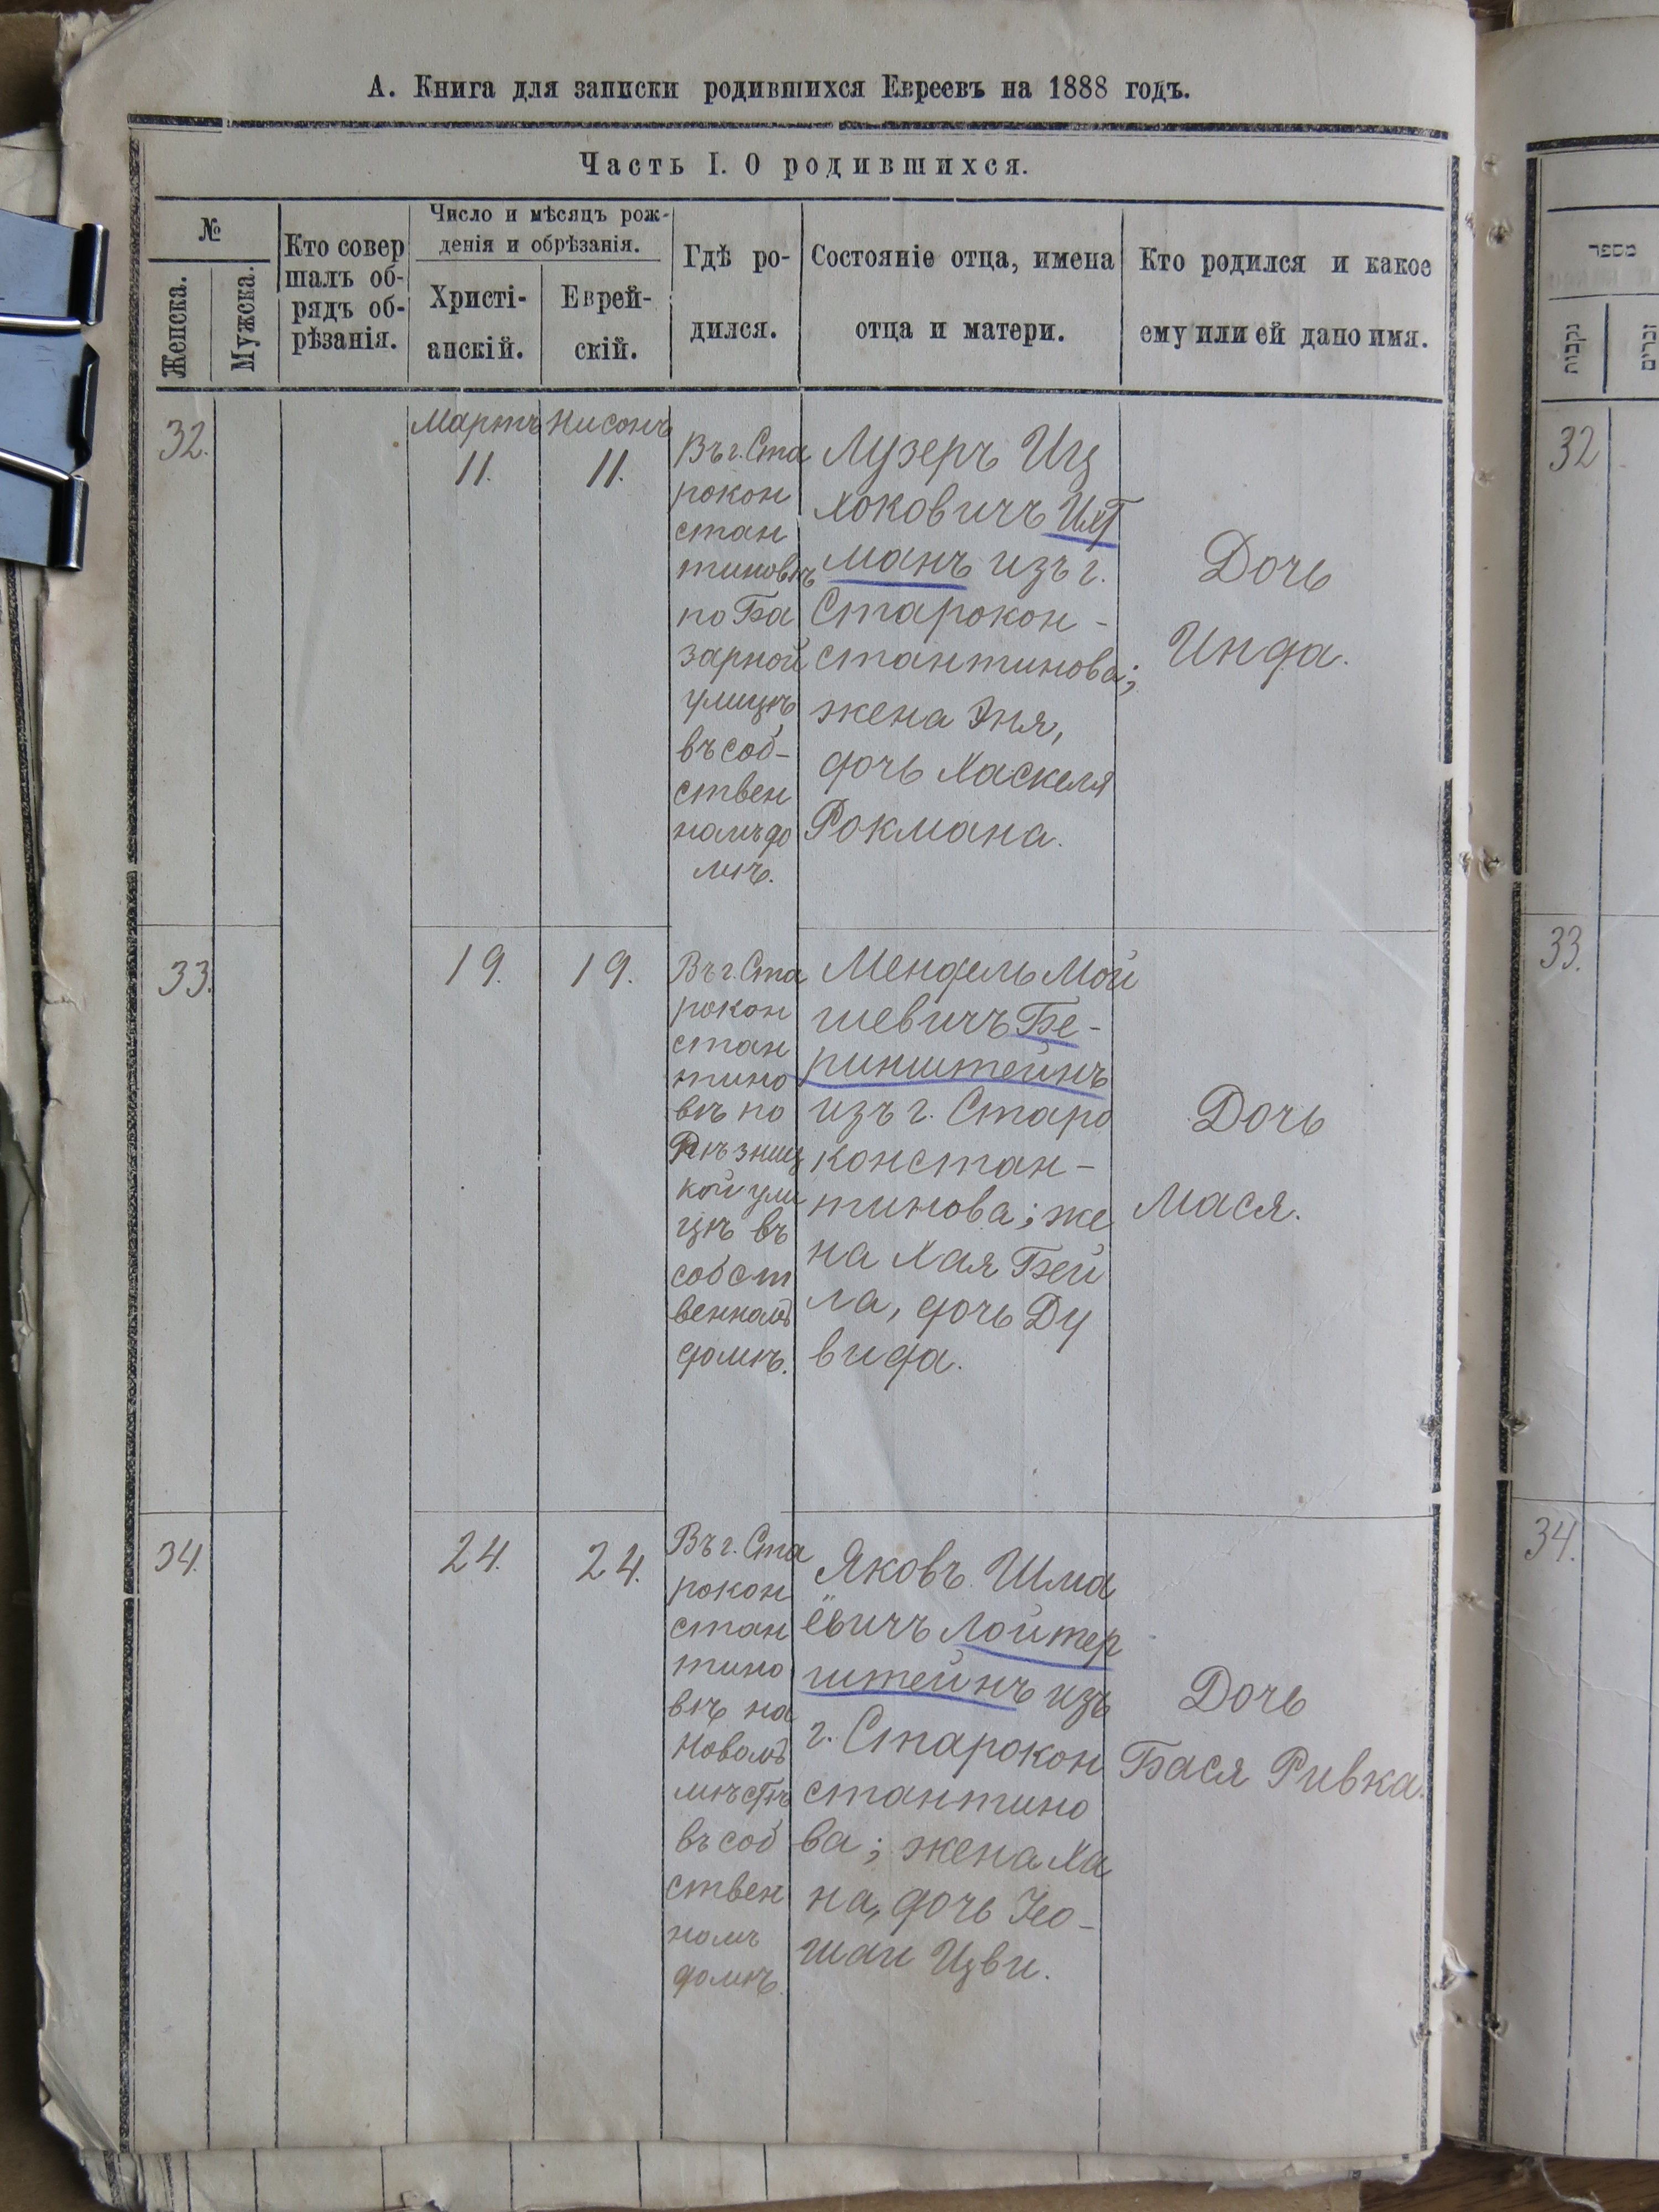 А. Книга для записки родившихся Евреевъ на 1888 годъ.
Часть I. О родившихся.
№
Женска.
Мужска.
Кто совер
шалъ об-
рядъ об-
рѣзанія.
Число и мѣсяцъ рож-
денія и обрѣзанія.
Христі-
анскій.
Еврей-
скій.
Гдѣ ро-
дился.
Состояніе отца, имена
отца и матери.
Кто родился и какое
ему или ей дано имя.
32.
Мартъ
11.
Нисонъ
11.
Въ г. Ста
рокон
стан
тиновѣ
по Ба
зарной
улицѣ
въ соб-
ствен
номъ до
мѣ.
Лузеръ Иц
хоковичъ
манъ изъ г.
Старокон-
стантинова;
жена Эня,
дочь Хаскеля
Рокмана.
Дочь
Инда.
33.
19.
19.
Въ г. Ста
рокон
стан
тино
вѣ по
Рѣзниц
кой ули
цѣ въ
собст
венномъ
домѣ.
Мендель Мой
шевичъ Бе-
ринштейнъ
изъ г. Старо
констан-
тинова; же
на Хая Бей
ла, дочь Ду
вида.
Дочь
Мася.
34.
24.
24.
Въ г. Ста
рокон
стан
тино
вѣ на
Новомъ
мѣстѣ
въ соб
ствен
номъ
домѣ.
Яковъ Шма
ёвичъ Лойтер
штейнъ изъ
г. Старокон
стантино
ва; жена Ха
на, дочь Іео-
шаи Цви.
Дочь
Бася Ривка.
מספר
נקבות
זכרים
32
33.
34.